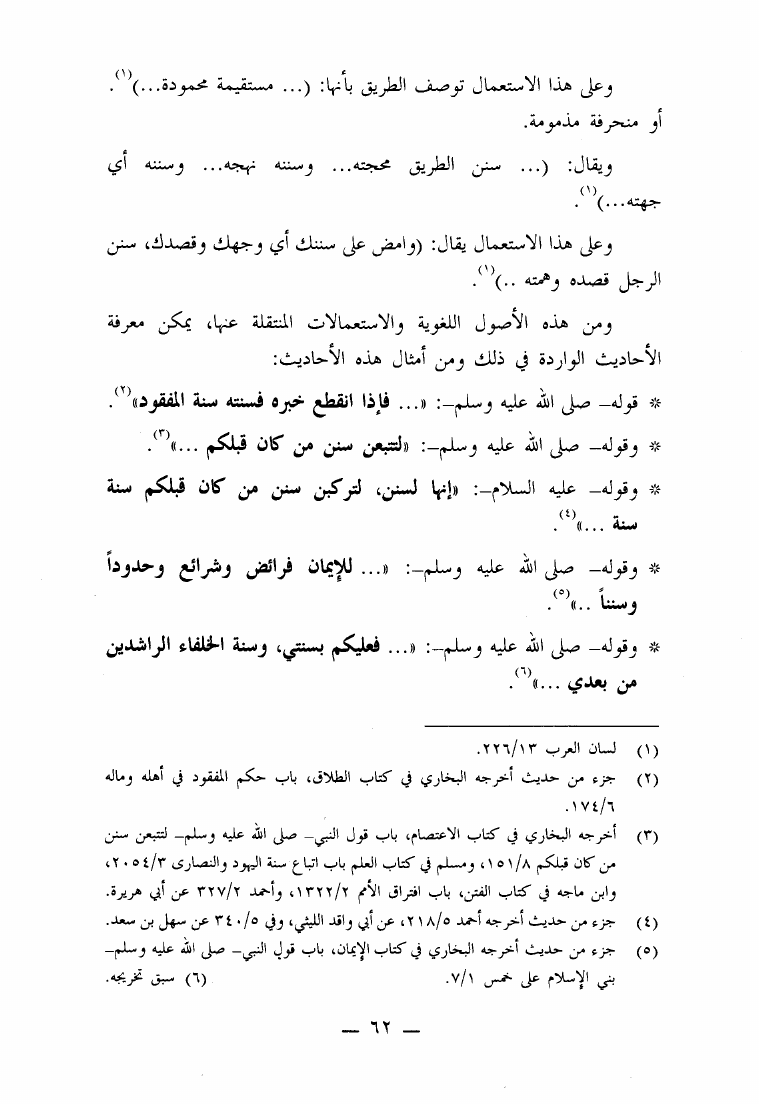 وعلى هذا الاستعمال توصف الطريق بأنها: (... مستقيمة محمودة...)(١).
أو منحرفة مذمومة.
ويقال: (... سنن الطريق محجته... وسننه نهجه... وسننه أي
جهته...)(١).
وعلى هذا الاستعمال يقال: (وامض على سننك أي وجهك وقصدك، سنن
الرجل قصده وهمته ..)(١).
ومن هذه الأصول اللغوية والاستعمالات المنتقلة عنها، يمكن معرفة
الأحاديث الواردة في ذلك ومن أمثال هذه الأحاديث:
* قوله– صلى الله عليه وسلم–: «... فإذا انقطع خبره فسنته سنة المفقود»(٢).
* وقوله– صلى الله عليه وسلم–: «لتتبعن سنن من كان قبلكم ...»(٣).
* وقوله– عليه السلام–: «إنها لسنن، لتركبن سنن من كان قبلكم سنة
سنة ...»(٤).
* وقوله– صلى الله عليه وسلم–: «... للإيمان فرائض وشرائع وحدوداً
وسنناً ..»(٥).
* وقوله– صلى الله عليه وسلم–: «... فعليكم بسنتي، وسنة الخلفاء الراشدين
من بعدي ...»(٦).
(١) لسان العرب ٢٢٦/١٣.
(٢) جزء من حديث أخرجه البخاري في كتاب الطلاق، باب حكم المفقود في أهله وماله
١٧٤/٦.
(٣) أخرجه البخاري في كتاب الاعتصام، باب قول النبي– صلى الله عليه وسلم– لتتبعن سنن
من كان قبلكم ١٥١/٨، ومسلم في كتاب العلم باب اتباع سنة اليهود والنصارى ٢٠٥٤/٣،
وابن ماجه في كتاب الفتن، باب افتراق الأمم ١٣٢٢/٢، وأحمد ٣٢٧/٢ عن أبي هريرة.
(٤) جزء من حديث أخرجه أحمد ٢١٨/٥، عن أبي واقد الليثي، وفي ٣٤٠/٥ عن سهل بن سعد.
(٥) جزء من حديث أخرجه البخاري في كتاب الإيمان، باب قول النبي– صلى الله عليه وسلم–
بني الإسلام على خمس ٧/١. (٦) سبق تخريجه.
— ٦٢ —